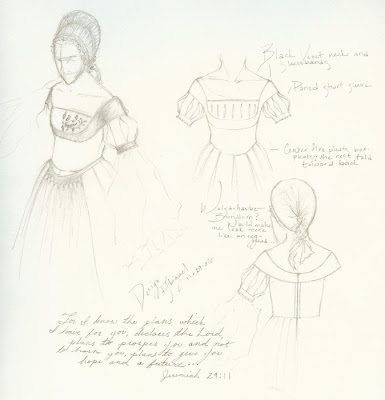 Black Velvet neck and
sleevebands
Paned short sleeve
— Center line pleats box
pleated the rest fold
toward back
Would make
me look more
like an egg
head
11-29-06
For I know the plans which
I have for you, declares the Lord,
plans to prosper you and not
to harm you, plans to give you
hope and a future...
Jeremiah 29:11